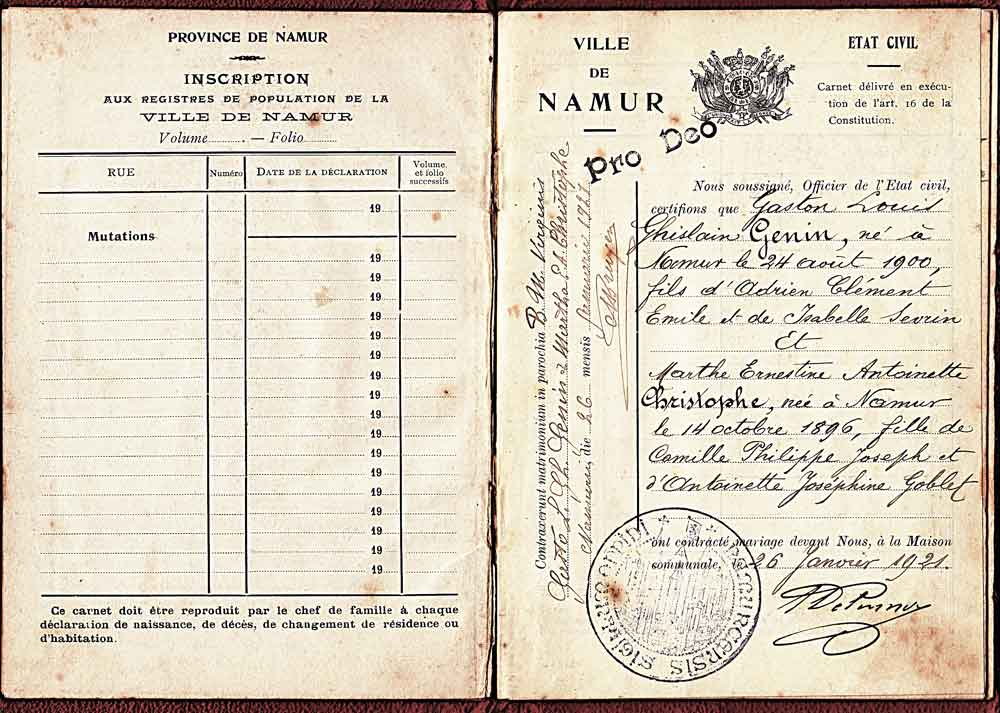 PROVINCE DE NAMUR
INSCRIPTION
AUX REGISTRES DE POPULATION DE LA
VILLE DE NAMUR
Volume............ — Folio............
RUE Numéro DATE DE LA DÉCLARATION Volume et folio successifs
19
Mutations
19
19
19
19
19
19
19
19
19
19
19
19
19
19
19
19
19
Ce carnet doit être reproduit par le chef de famille à chaque
déclaration de naissance, de décès, de changement de résidence ou
d'habitation.
VILLE
DE
NAMUR
ETAT CIVIL
Carnet délivré en exécu-
tion de l'art. 16 de la
Constitution.
Pro Deo
Nous soussigné, Officier de l'Etat civil,
certifions que Gaston Louis
Ghislain Genin, né à
Namur le 24 août 1900,
fils d'Adrien Clément
Emile et de Isabelle Sevrin
Et
Marthe Ernestine Antoinette
Christophe, née à Namur
le 14 octobre 1896, fille de
Camille Philippe Joseph et
d'Antoinette Joséphine Goblet
ont contracté mariage devant Nous, à la Maison
communale, le 26 Janvier 1921.
Contraxerunt matrimonium in parochia B. M. Virginis
Genin & Martha Christophe
die 26 mensis Januarii 1921